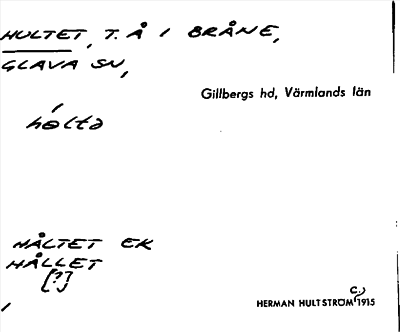 HULTET, T. Å I BRÅNE,
GLAVA SN,
Gillbergs hd, Värmlands län
hólta
HÅLTET EK
HÅLLET
[?]
C:)
HERMAN HULTSTRÖM 1915